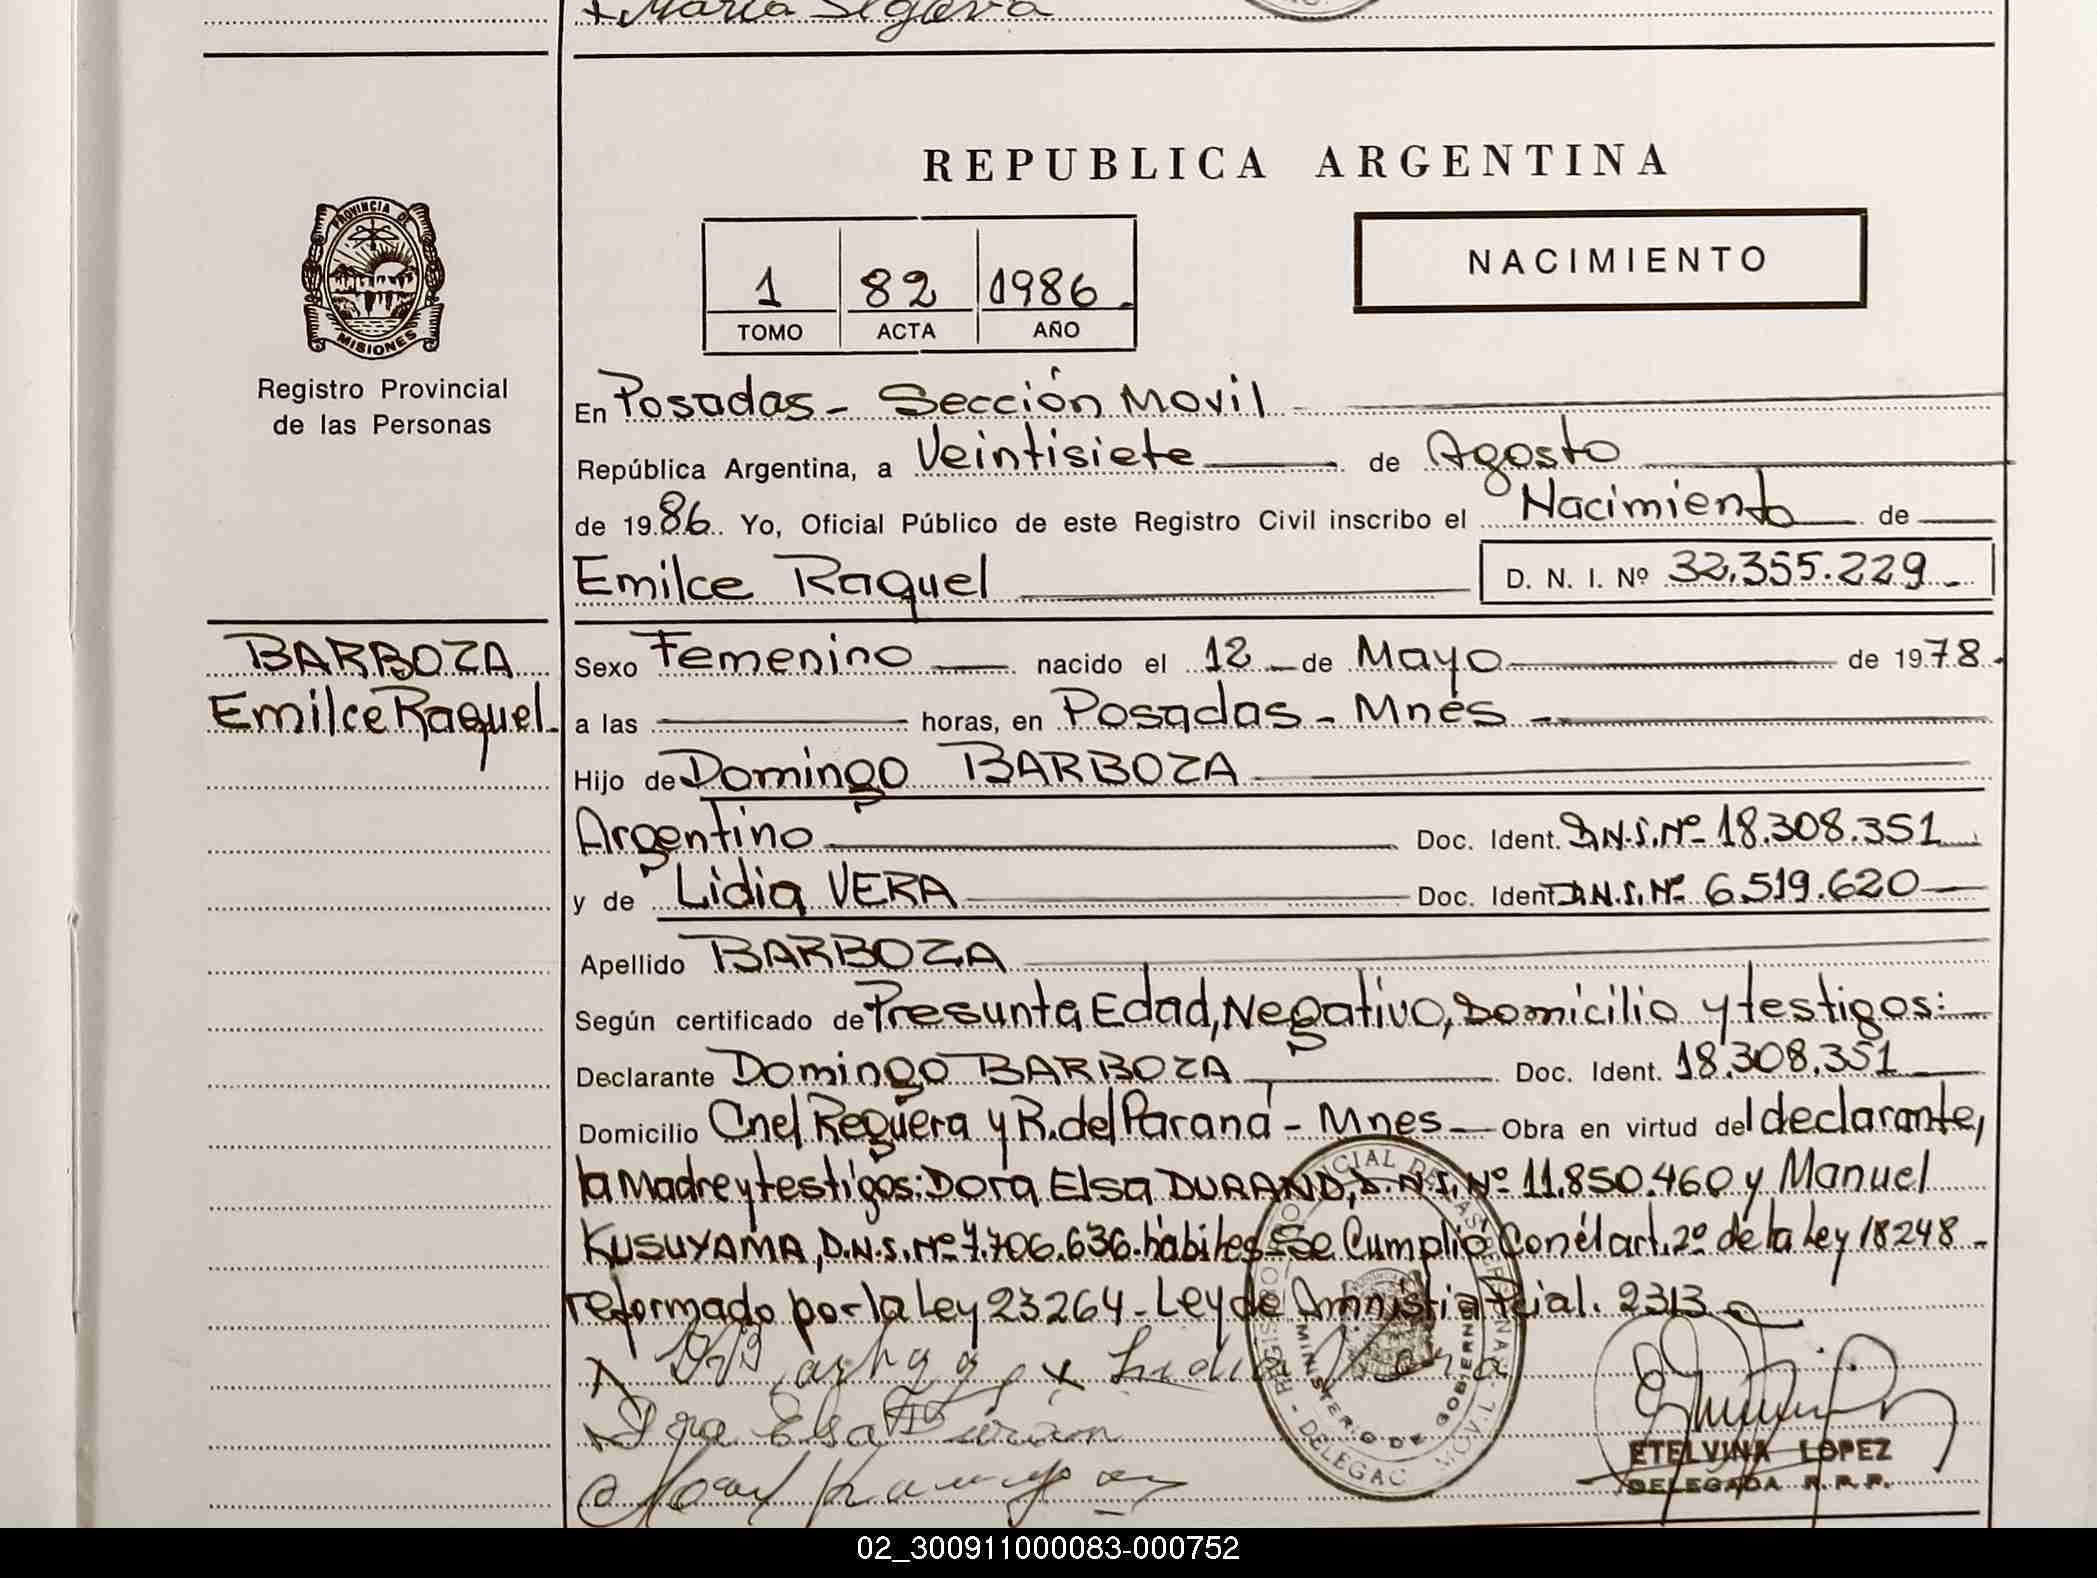 María Segovia
REPUBLICA ARGENTINA
PROVINCIA DE
MISIONES
Registro Provincial
de las Personas
NACIMIENTO
1 82 1986
TOMO ACTA AÑO
En Posadas - Sección Movil
República Argentina, a Veintisiete de Agosto
de 1986. Yo, Oficial Público de este Registro Civil inscribo el Nacimiento de
Emilce Raquel D. N. I. Nº 32.355.229.-
BARBOZA
Emilce Raquel.
Sexo Femenino nacido el 12 de Mayo de 1978.
a las horas, en Posadas - Mnes -
Hijo de Domingo BARBOZA
Argentino Doc. Ident. D.N.I. Nº 18.308.351
y de Lidia VERA Doc. Ident. D.N.I. Nº 6.519.620
Apellido BARBOZA
Según certificado de Presunta Edad, Negativo, Domicilio y testigos:
Declarante Domingo BARBOZA Doc. Ident. 18.308.351
Domicilio Cnel Reguera y R. del Paraná - Mnes - Obra en virtud del declarante,
la Madre y testigos: Dora Elsa DURAND, D.N.I. Nº 11.850.460 y Manuel
KUSUYAMA, D.N.I. Nº 7.706.636. hábiles - Se Cumplió Con él art. 2º de la Ley 18248 -
reformado por la Ley 23264 - Ley de Amnistia Pcial. 2313
x Lidia Vera
Dora Elsa Duran
REGISTRO PROVINCIAL DE LAS PERSONAS - DELEGAC. MOVIL
MINISTERIO DE GOBIERNO
ETELVINA LOPEZ
DELEGADA R.P.P.
02_300911000083-000752